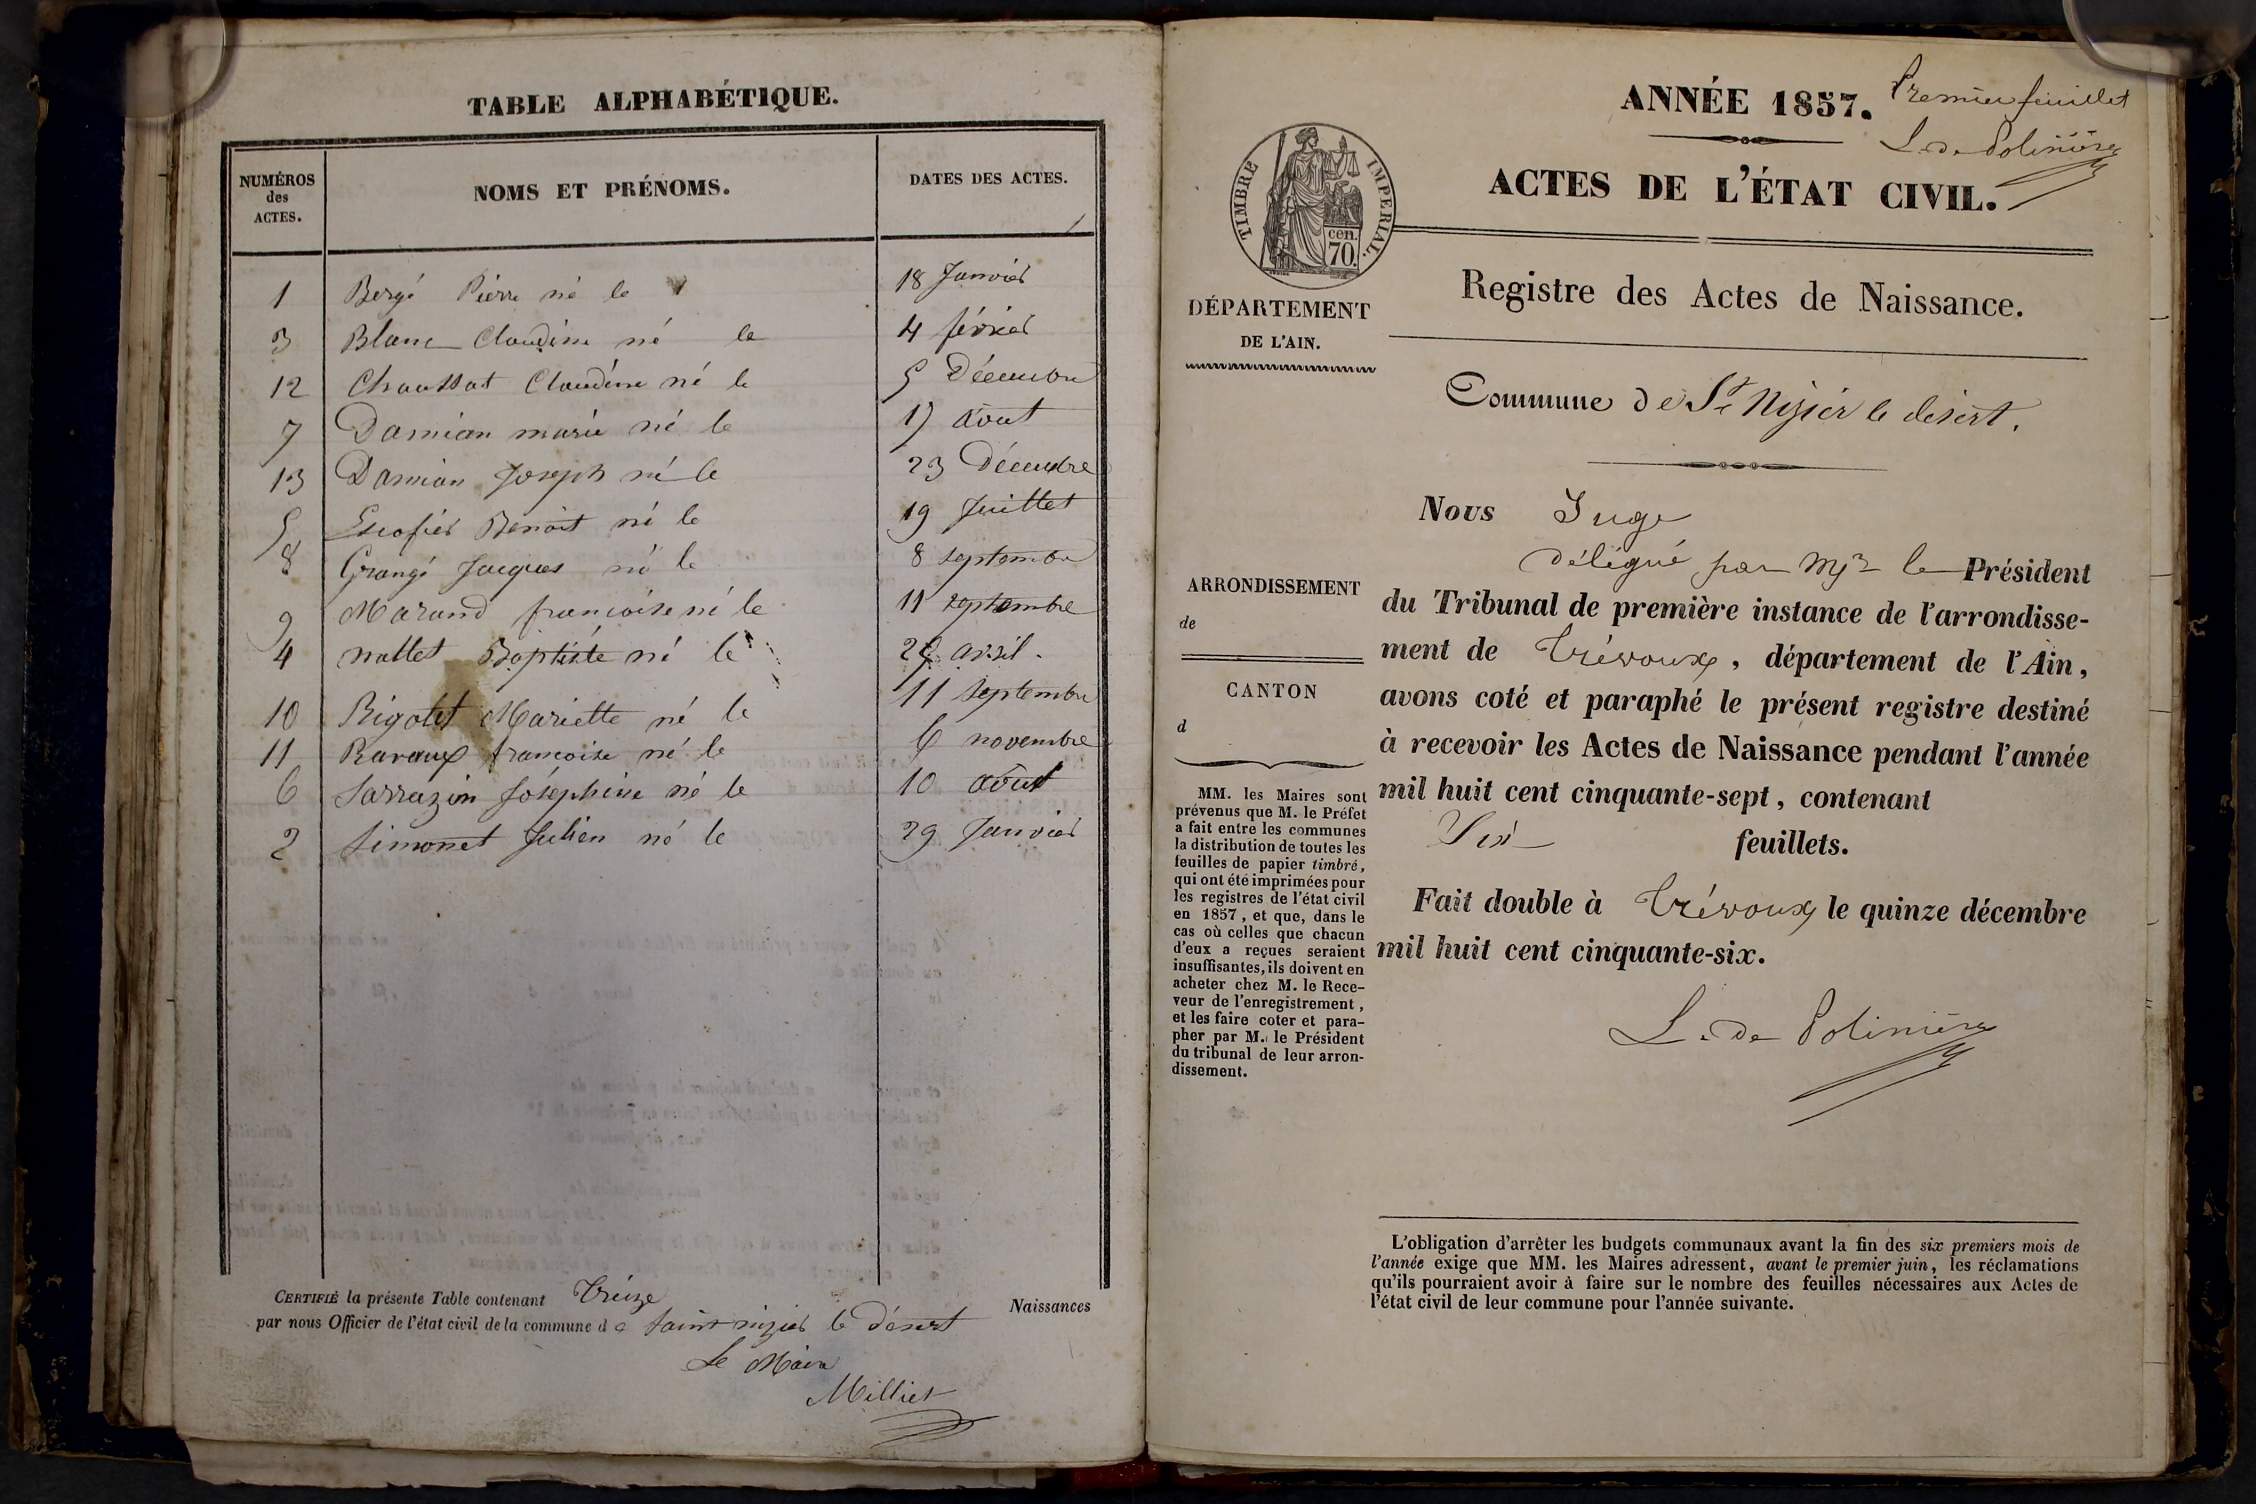 TABLE ALPHABÉTIQUE.
NUMÉROS
des
ACTES.
NOMS ET PRÉNOMS.
DATES DES ACTES.
1 Bergé Pierre né le 18 Janvier
3 Blanc Claudine né le 4 février
12 Chaussat Claudine né le 5 Décembre
7 Damian marie né le 17 août
13 Damian Joseph né le 23 Décembre
5 Escofier Benoit né le 19 Juillet
8 Grangé Jacques né le 8 septembre
9 Marand françoise né le 11 septembre
4 nallet Baptiste né le avril
10 Rigolet Mariette né le 11 septembre
11 Ravaux francoise né le 6 novembre
6 Sarrazin Joséphine né le 10 août
2 Simonet Julien né le 29 Janvier
CERTIFIÉ la présente Table contenant Treize Naissances
par nous Officier de l'état civil de la commune de Saint-nizier le Désert
Le Maire
Milliet
ANNÉE 1857.
Premier feuillet
L. de Polinière
TIMBRE IMPÉRIAL.
cen.
70.
ACTES DE L'ÉTAT CIVIL.
Registre des Actes de Naissance.
DÉPARTEMENT
DE L'AIN.
Commune de St Nizier le désert.
Nous Juge
délégué par Mr le Président
du Tribunal de première instance de l'arrondisse-
ment de Trévoux, département de l'Ain,
avons coté et paraphé le présent registre destiné
à recevoir les Actes de Naissance pendant l'année
mil huit cent cinquante-sept, contenant
Six feuillets.
Fait double à Trévoux le quinze décembre
mil huit cent cinquante-six.
L. de Polinière
ARRONDISSEMENT
de
CANTON
d
MM. les Maires sont
prévenus que M. le Préfet
a fait entre les communes
la distribution de toutes les
feuilles de papier timbré,
qui ont été imprimées pour
les registres de l'état civil
en 1857, et que, dans le
cas où celles que chacun
d'eux a reçues seraient
insuffisantes, ils doivent en
acheter chez M. le Rece-
veur de l'enregistrement,
et les faire coter et para-
pher par M. le Président
du tribunal de leur arron-
dissement.
L'obligation d'arrêter les budgets communaux avant la fin des six premiers mois de
l'année exige que MM. les Maires adressent, avant le premier juin, les réclamations
qu'ils pourraient avoir à faire sur le nombre des feuilles nécessaires aux Actes de
l'état civil de leur commune pour l'année suivante.